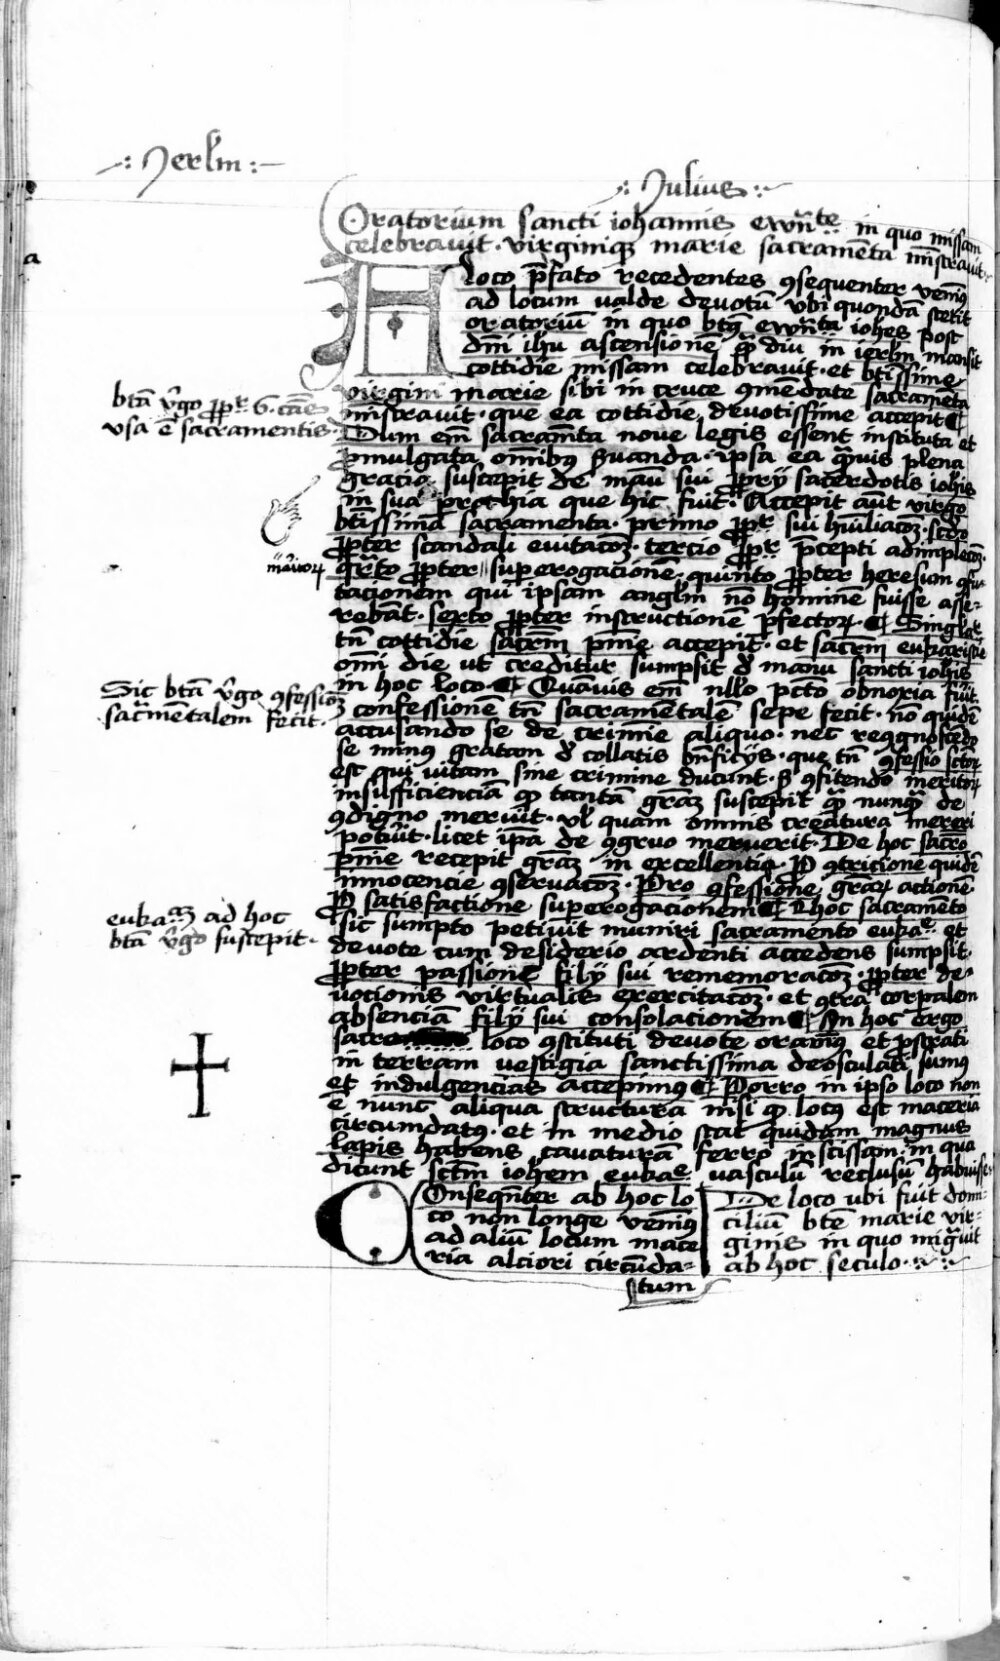 Jerlm
Julius
Oratorium sancti iohannis ewn̄te in quo missam
celebravit · virginiqꝫ marie sacramēta mīstravit
A loco p̄fato recedentes ꝯsequenter venimꝰ
ad locum valde devotū ubi quondā stetit
oratoriū in quo btꝰ ewn̄ta iohēs post
dm̄ ihū ascensionē diu in ierlm mansit
cottidie missam celebravit · et btissime
virgini marie sibi in cruce ꝯmendate sacramēta
mīstravit · que ea cottidie devotissime accepit ¶
btā v̄go ꝓpt 6 · cāes
usa ē sacramentis ·
Dum em̄ sacramēta nove legis essent instituta et
ꝓmulgata omībꝰ servanda · ipsa ea q̄vis plena
gracia suscepit de manu sui ꝓprij sacerdotis iohīs
in sua que hic fuit · Accepit aūt virgo
btissima sacramenta · primo ꝓpt sui hūiliacōꝫ · scdo
ꝓpter scandali evitacōꝫ · tercio ꝓpt p̄cepti adimplecōꝫ
q̄rto ꝓpter superogacionē · quinto ꝓpter heresum ꝯfu
tacionem qui ipsam angelm nō hominē fuisse asse-
rebāt · sexto ꝓpter instructionē ꝑfectoꝝ · ¶ Singlar
tn̄ cottidie sacrm̄ pn̄ie accepit · et sacrm̄ eukaristie
omī die ut creditur sumpsit d̄ manu sancti iohīs
in hoc loco · ¶ Quāvis em̄ nllo pctō obnoxia fuit
Sic btā v̄go ꝯfessionē
sac̄mētalem fecit ·
confessionē tn̄ sacramentalē sepe fecit · nō quidē
accusando se de crimīe aliquo · nec recognoscēdo
se minꝰ gratam d̄ collatis bn̄ficijs · que tn̄ ꝯfessio sctoꝝ
est qui vitam sine crimine ducunt · sꝫ ꝯfitendo meritoꝝ
insufficienciā qꝫ tantā grāꝫ suscepit q̄ nunq̄ de
ꝯdigno meruit · vl quam omnis creatura mereri
potuit · licet ipā de ꝯgruo meruerit · De hoc sacrō
pn̄ie recepit grāꝫ in excellentia · ꝓ ꝯtricione quidē
innocencie ꝯservacōꝫ · Pro ꝯfessione grāꝝ actionē
ꝓ satisfactione superogacionem ¶ hoc sacramēto
eukāꝫ ad hoc
btā v̄go suscepit ·
sic sumpto petivit muniri sacramento eukāe · et
devote cum desiderio ardenti accedens sumpsit ·
ꝓpter passionē filij sui rememoracōꝫ · ꝓpter de-
vocionis virtualis exercitacōꝫ · et ꝯtrā corpalem
absenciā filij sui consolacionem ¶ In hoc ergo
sacro loco ꝯstituti devote oravimꝰ et pstrati
in terram vestigia sanctissima deosculati sumꝰ
et indulgencias accepimus ¶ Porro in ipso loco non
ē nunc aliqua structura nisi qꝫ locꝰ est maceria
circumdatꝰ · et in medio stat quidam magnus
lapis habens cavaturā ferro inscissam in qua
dicunt sctm̄ iohem eukāe vasculū reclusū habuisse
Consequēter ab hoc lo
co non longe venimꝰ
ad aliū locum mace
ria alciori circūda-
tum
De loco ubi fuit domi-
ciliū btē marie vir-
ginis in quo migravit
ab hoc seculo ·